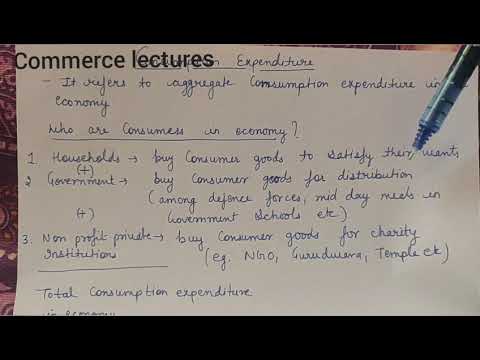 Commerce lectures
Consumption Expenditure
- It refers to aggregate Consumption expenditure in the
economy
Who are Consumers in economy?
1. Households → buy Consumer goods to satisfy their wants
(+)
2 Government → buy Consumer goods for distribution
(among defence forces, mid day meals in
(+) Government Schools etc)
3. Non profit private → buy Consumer goods for charity
Institutions (eg. NGO, Gurudwara, Temple etc)
Total Consumption expenditure
in economy